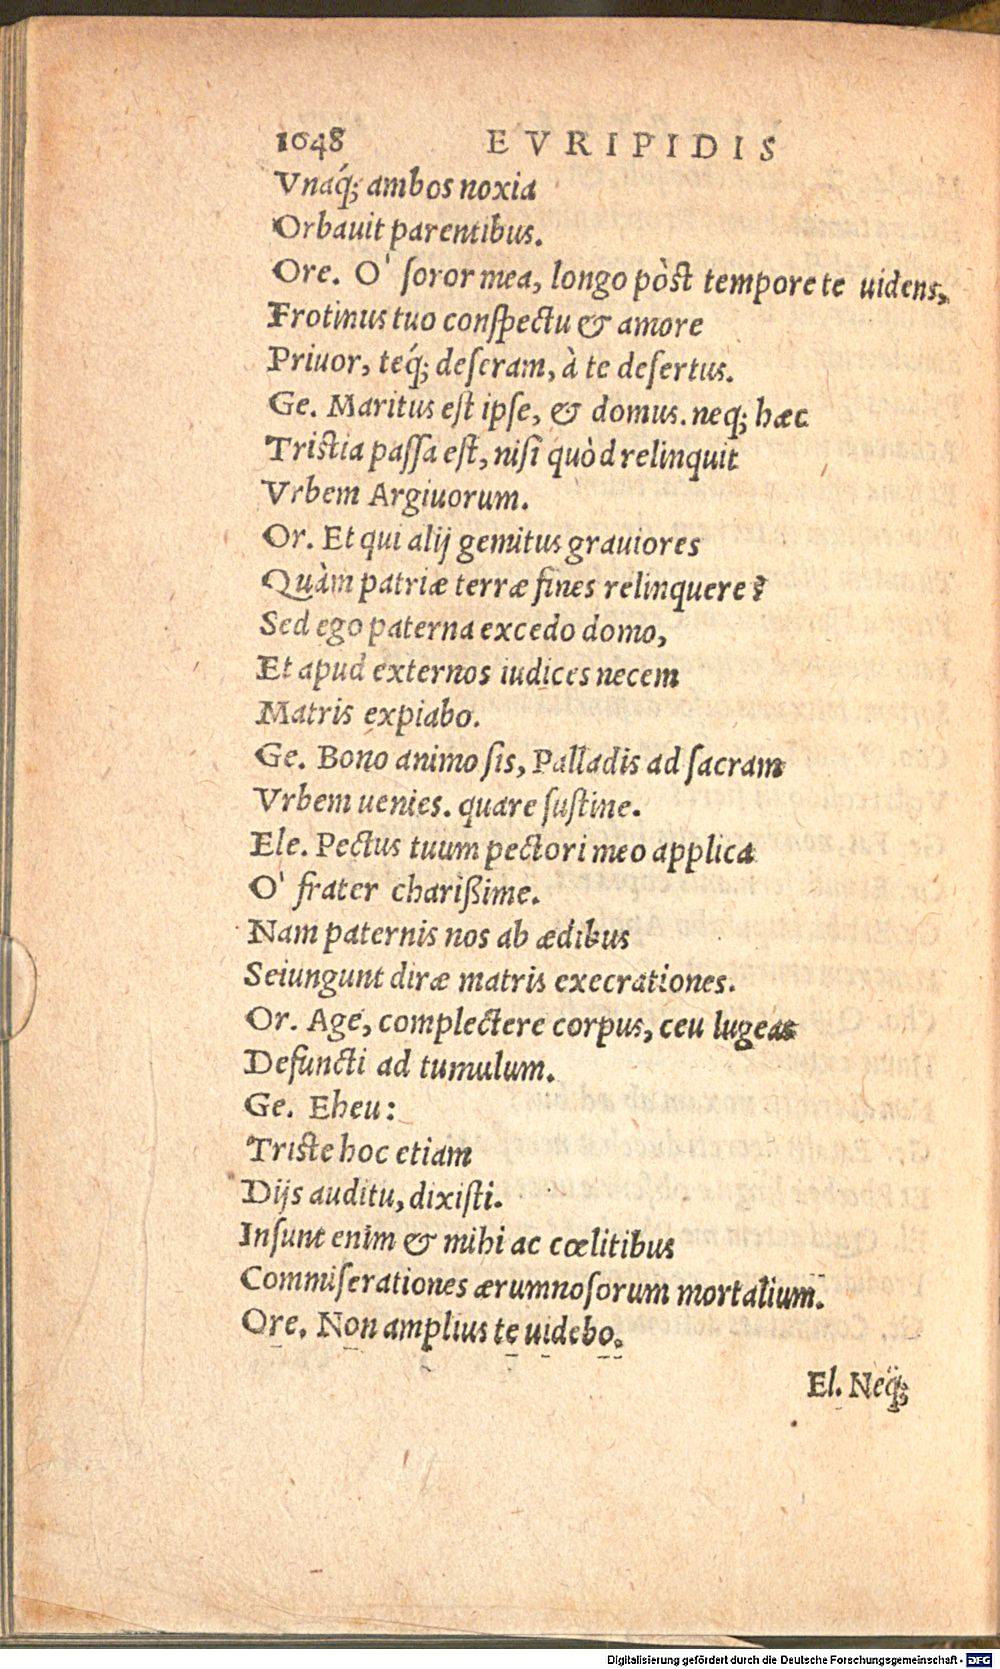 1048 EVRIPIDIS
Vnaq́; ambos noxia
Orbauit parentibus.
Ore. O' ſoror mea, longo pòſt tempore te uidens,
Frotinus tuo conſpectu & amore
Priuor, teq́; deſeram, à te deſertus.
Ge. Maritus eſt ipſe, & domus. neq; hæc
Triſtia paſſa eſt, niſi quòd relinquit
Vrbem Argiuorum.
Or. Et qui alij gemitus grauiores
Quàm patriæ terræ fines relinquere?
Sed ego paterna excedo domo,
Et apud externos iudices necem
Matris expiabo.
Ge. Bono animo ſis, Palladis ad ſacram
Vrbem uenies. quare ſuſtine.
Ele. Pectus tuum pectori meo applica
O' frater chariſſime.
Nam paternis nos ab ædibus
Seiungunt diræ matris execrationes.
Or. Age, complectere corpus, ceu lugeas
Defuncti ad tumulum.
Ge. Eheu:
Triſte hoc etiam
Dijs auditu, dixiſti.
Inſunt enim & mihi ac cœlitibus
Commiſerationes ærumnoſorum mortalium.
Ore. Non amplius te uidebo.
El. Neq́;
Digitalisierung gefördert durch die Deutsche Forschungsgemeinschaft - DFG